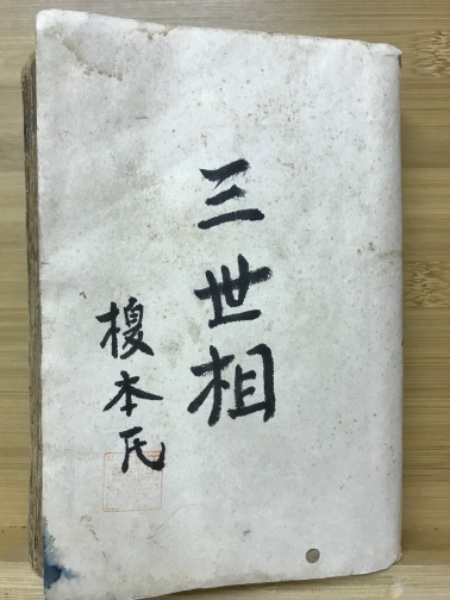 三世相
榎本氏